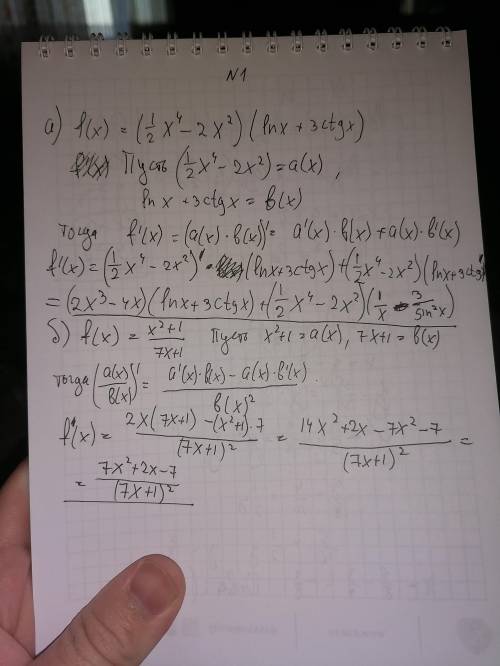 N1
а) f(x) = (1/2 x⁴ - 2x²)(lnx + 3ctgx)
Пусть (1/2 x⁴ - 2x²) = a(x),
lnx + 3ctgx = b(x)
тогда f'(x) = (a(x)·b(x))' = a'(x)·b(x) + a(x)·b'(x)
f'(x) = (1/2 x⁴ - 2x²)' · (lnx + 3ctgx) + (1/2 x⁴ - 2x²)(lnx + 3ctgx)'
= (2x³ - 4x)(lnx + 3ctgx) + (1/2 x⁴ - 2x²)(1/x - 3/sin²x)
б) f(x) = (x²+1)/(7x+1) Пусть x²+1 = a(x), 7x+1 = b(x)
тогда (a(x)/b(x))' = (a'(x)·b(x) - a(x)·b'(x))/b(x)².
f'(x) = (2x(7x+1) - (x²+1)·7)/(7x+1)² = (14x²+2x-7x²-7)/(7x+1)² =
= (7x²+2x-7)/(7x+1)²